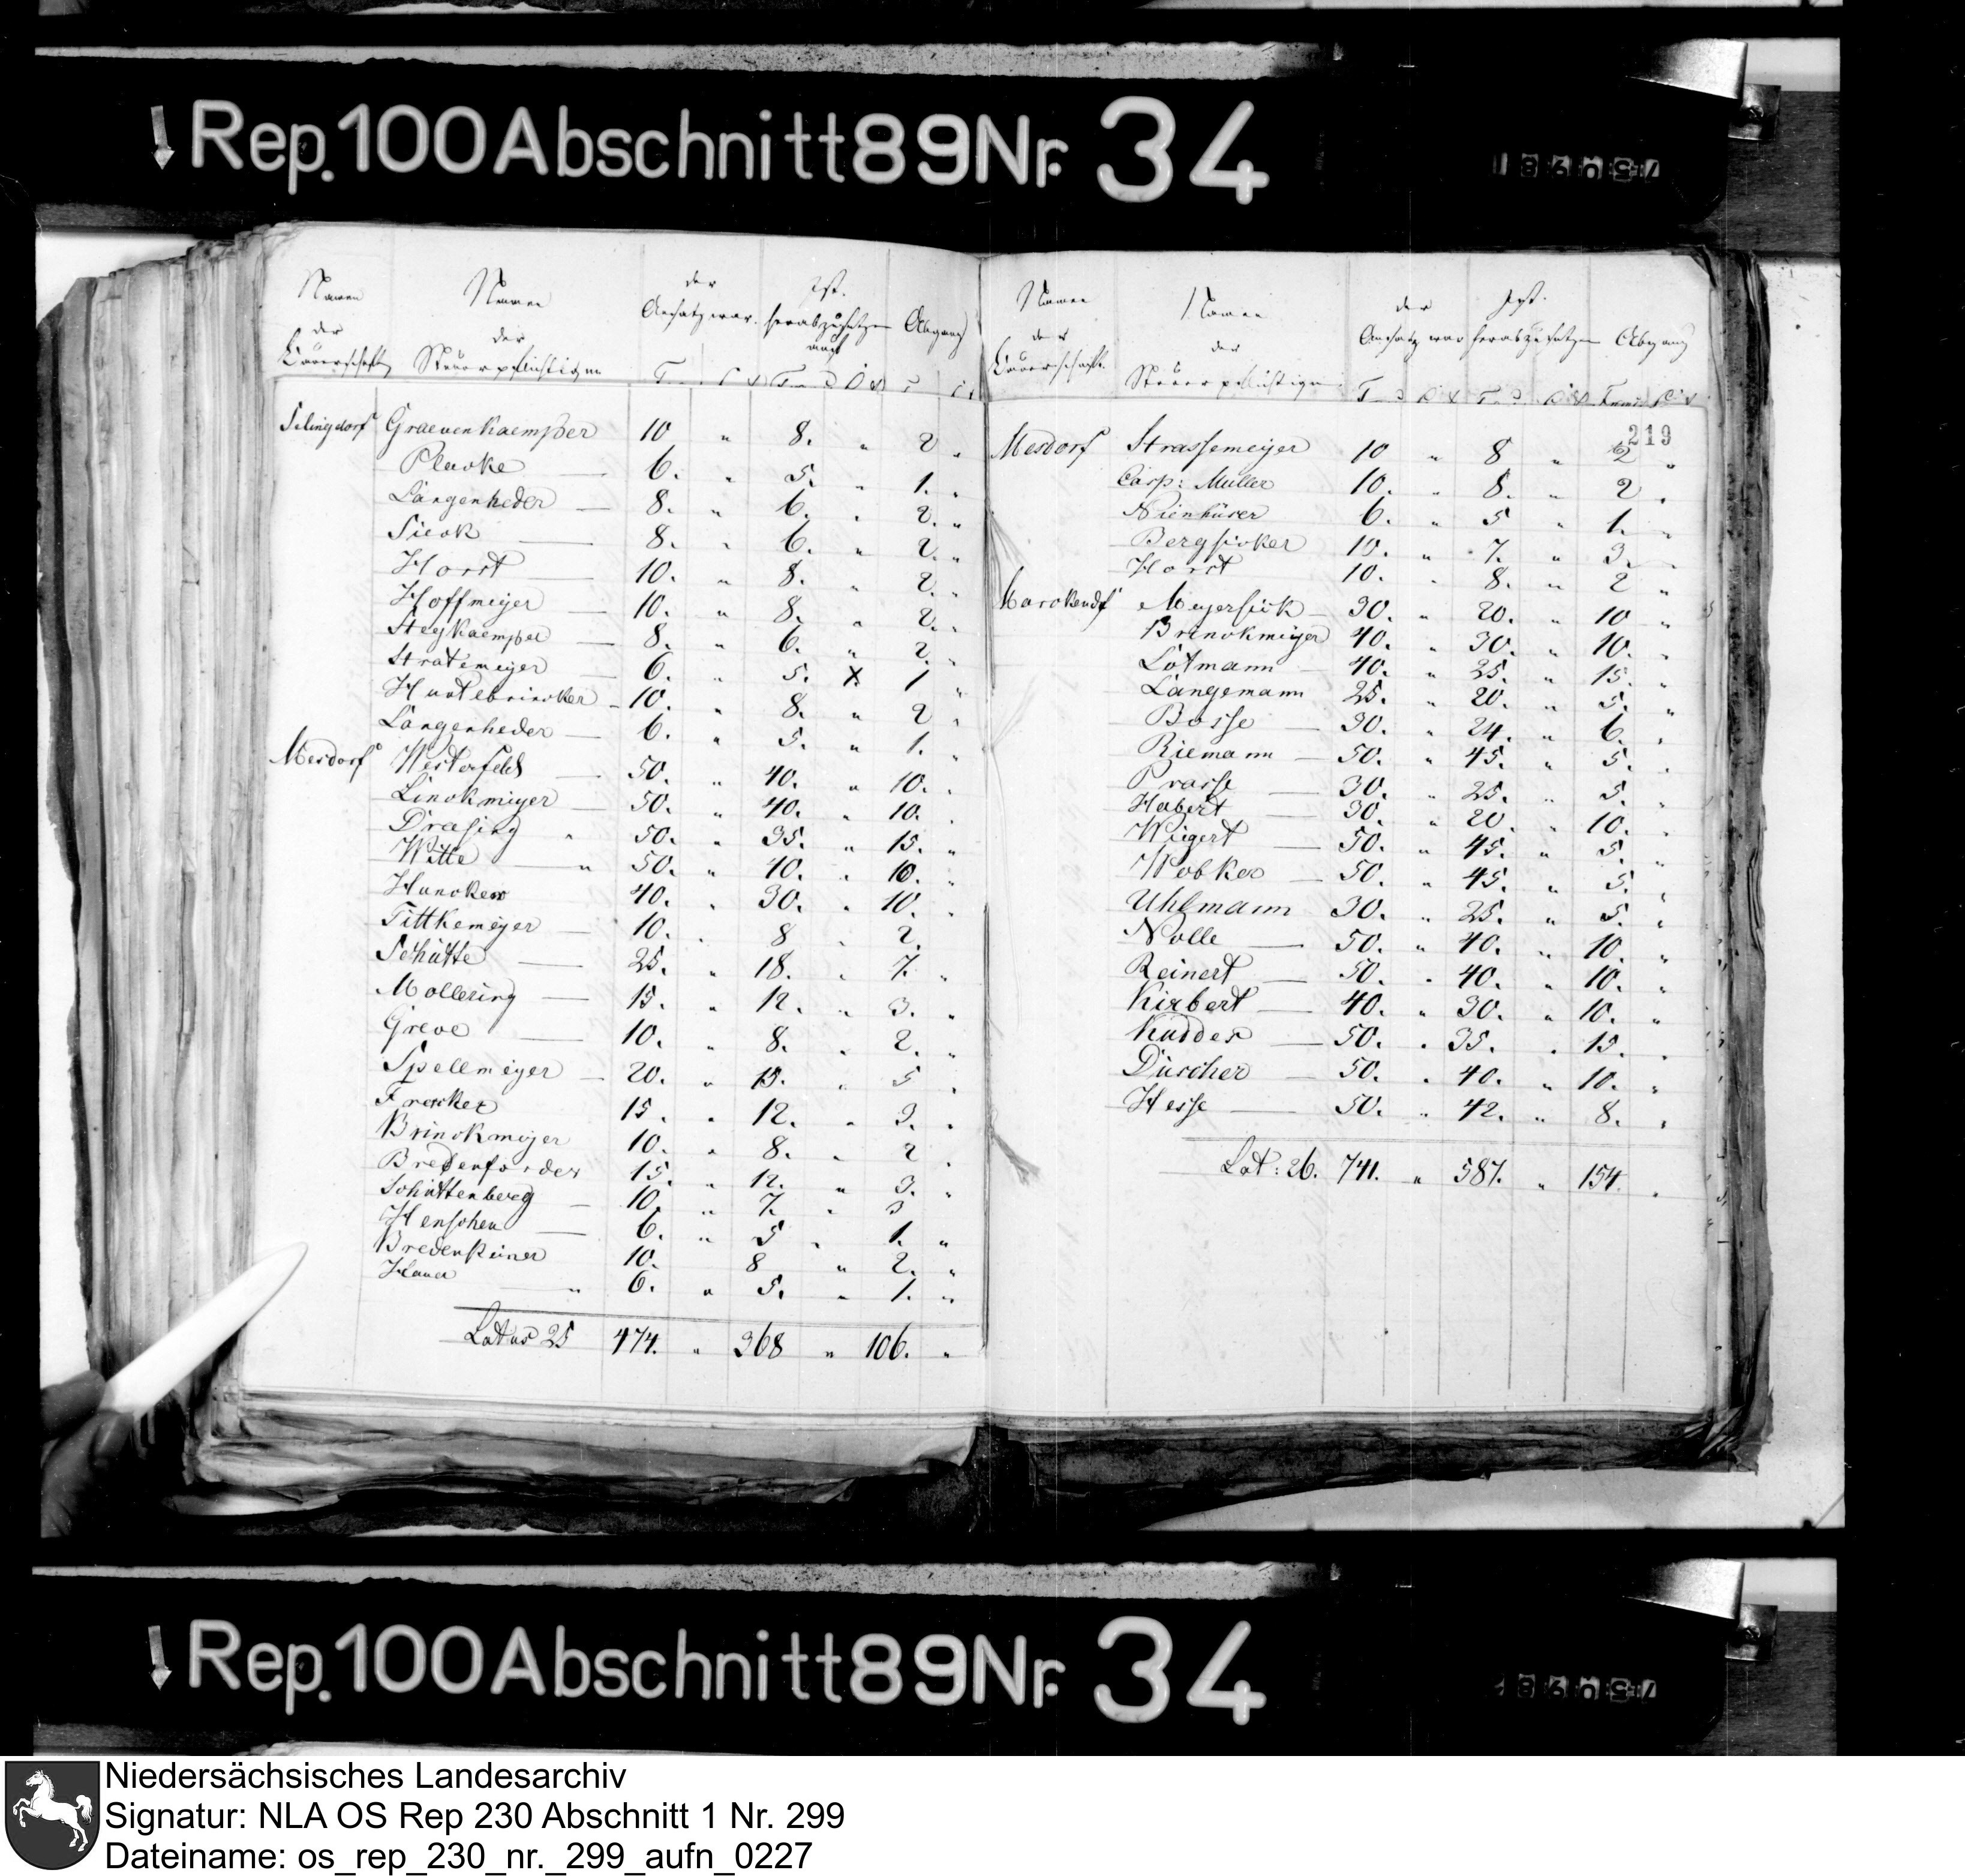 Rep.100Abschnitt89Nr. 34
Namen Namen der Jst.
der der Ansatz war. herabzusetzen Abgang
Bauerschaft Steuerpflichtigen auf
Selingdorf Graevenkaemper 10 " 8. " 2 "
Plaoke 6. " 5. " 1. "
Langenheder 8. " 6. " 2. "
Sieck 8. " 6. " 2. "
Horst 10. " 8. " 2. "
Hoffmeyer 10. " 8. " 2. "
Stegkaemper 8. " 6. " 2. "
Stratemeyer 6. " 5. X. 1 "
Huntebrincker 10. " 8. " 2 "
Langenheder 6. " 5. " 1. "
Mesdorf Westerfeld 50. " 40. " 10. "
Linckmeyer 50. " 40. " 10. "
Draesing " 50. " 35. " 15. "
Witte " 50. " 40. " 10. "
Huncker 40. " 30. " 10. "
Tittkemeyer 10. " 8 " 2.
Schütte 25. " 18. " 7. "
Mollering 15. " 12. " 3. "
Greve 10. " 8. " 2. "
Spellmeyer 20. " 15. " 5 "
Frecker 15. " 12. " 3. "
Brinckmeyer 10. " 8. " 2 "
Bredenforder 15. " 12. " 3. "
Schüttenberg 10. " 7. " 3
Henschen 6. " 5 " 1. "
Bredensteiner 10. 8 " 2. "
Hauer " 6. " 5. " 1. "
Latus 25 474. " 368 " 106. "
Namen Namen der Jst.
der der Ansatz war herabzusetzen Abgang
Bauerschaft. Steuerpflichtigen
219
Mesdorf Strassemeyer 10 " 8 " 2 "
Casp: Muller 10. " 8. " 2 "
Nienhüser 6. " 5 " 1. "
Bergsieker 10. " 7. " 3. "
Horst 10. " 8. " 2 "
Marckendf Meyersick 30. " 20. " 10 "
Brinckmeyer 40. " 30. " 10. "
Lotmann 40. " 25. " 15. "
Langemann 25. " 20. " 5. "
Bosse 30. " 24. " 6. "
Riemann 50. " 45. " 5. "
Prasse 30. " 25. " 5. "
Habert 30. " 20. " 10. "
Wigert 50. " 45. " 5. "
Wobker 50. " 45. " 5. "
Uhlmann 30. " 25. " 5. "
Nolle 50. " 40. " 10. "
Reinert 50. " 40. " 10. "
Kirbert 40. " 30. " 10. "
Küdder 50. " 35. " 15. "
Düscher 50. " 40. " 10. "
Hesse 50. " 42. " 8. "
Lat: 26. 741. " 587. " 154. "
Rep.100Abschnitt89Nr. 34
Niedersächsisches Landesarchiv
Signatur: NLA OS Rep 230 Abschnitt 1 Nr. 299
Dateiname: os_rep_230_nr._299_aufn_0227